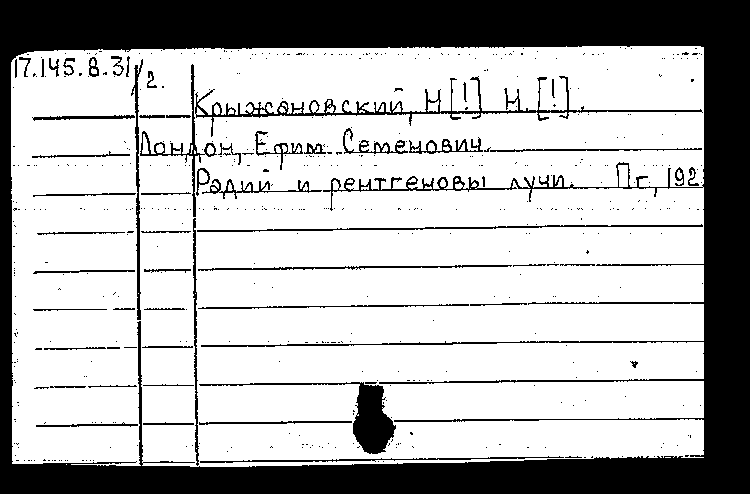 17.145.8.31/2.
Крыжановский, Н [!] Н. [!].
Лондон, Ефим Семенович.
Радий и рентгеновы лучи. Пг, 192